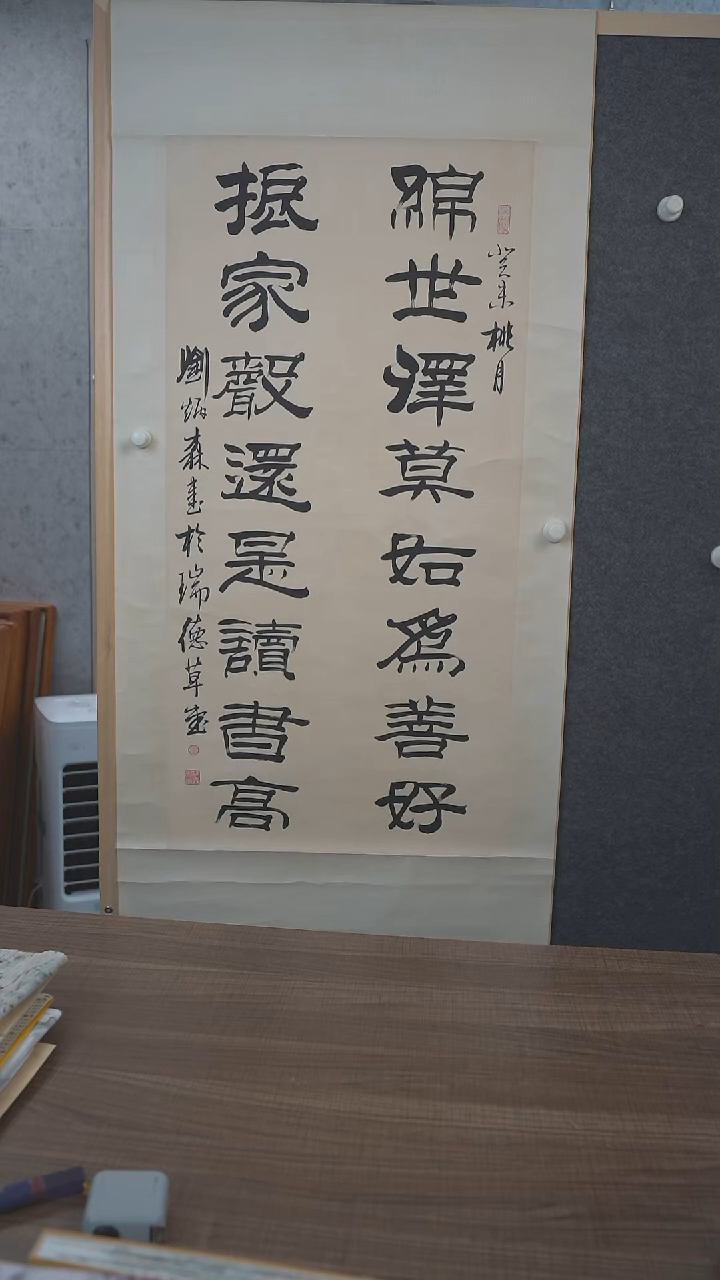 癸未桃月
綿世澤莫如為善好
振家聲還是讀書高
劉炳森書於瑞德草堂